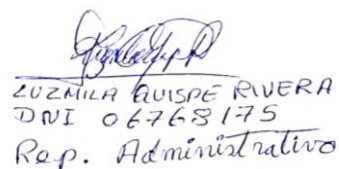 LUZMILA QUISPE RIVERA
DNI 06768175
Rep. Administrativo